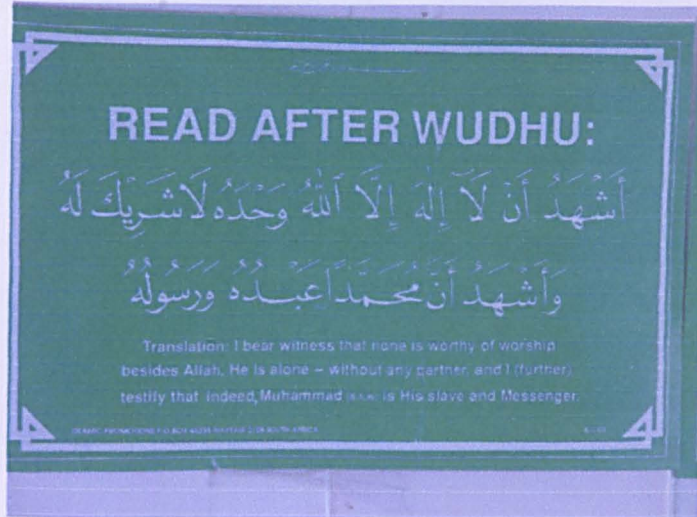 READ AFTER WUDHU:
أَشْهَدُ أَنْ لَآ إِلٰهَ إِلَّا ٱللهُ وَحْدَهُ لَا شَرِيْكَ لَهُ
وَأَشْهَدُ أَنَّ مُحَمَّدًا عَبْدُهُ وَرَسُولُهُ
Translation: I bear witness that none is worthy of worship
besides Allah. He is alone – without any partner, and I (further)
testify that indeed, Muhammad (S.A.W.) is His slave and Messenger.
ISLAMIC PROMOTIONS P.O. BOX SOUTH AFRICA